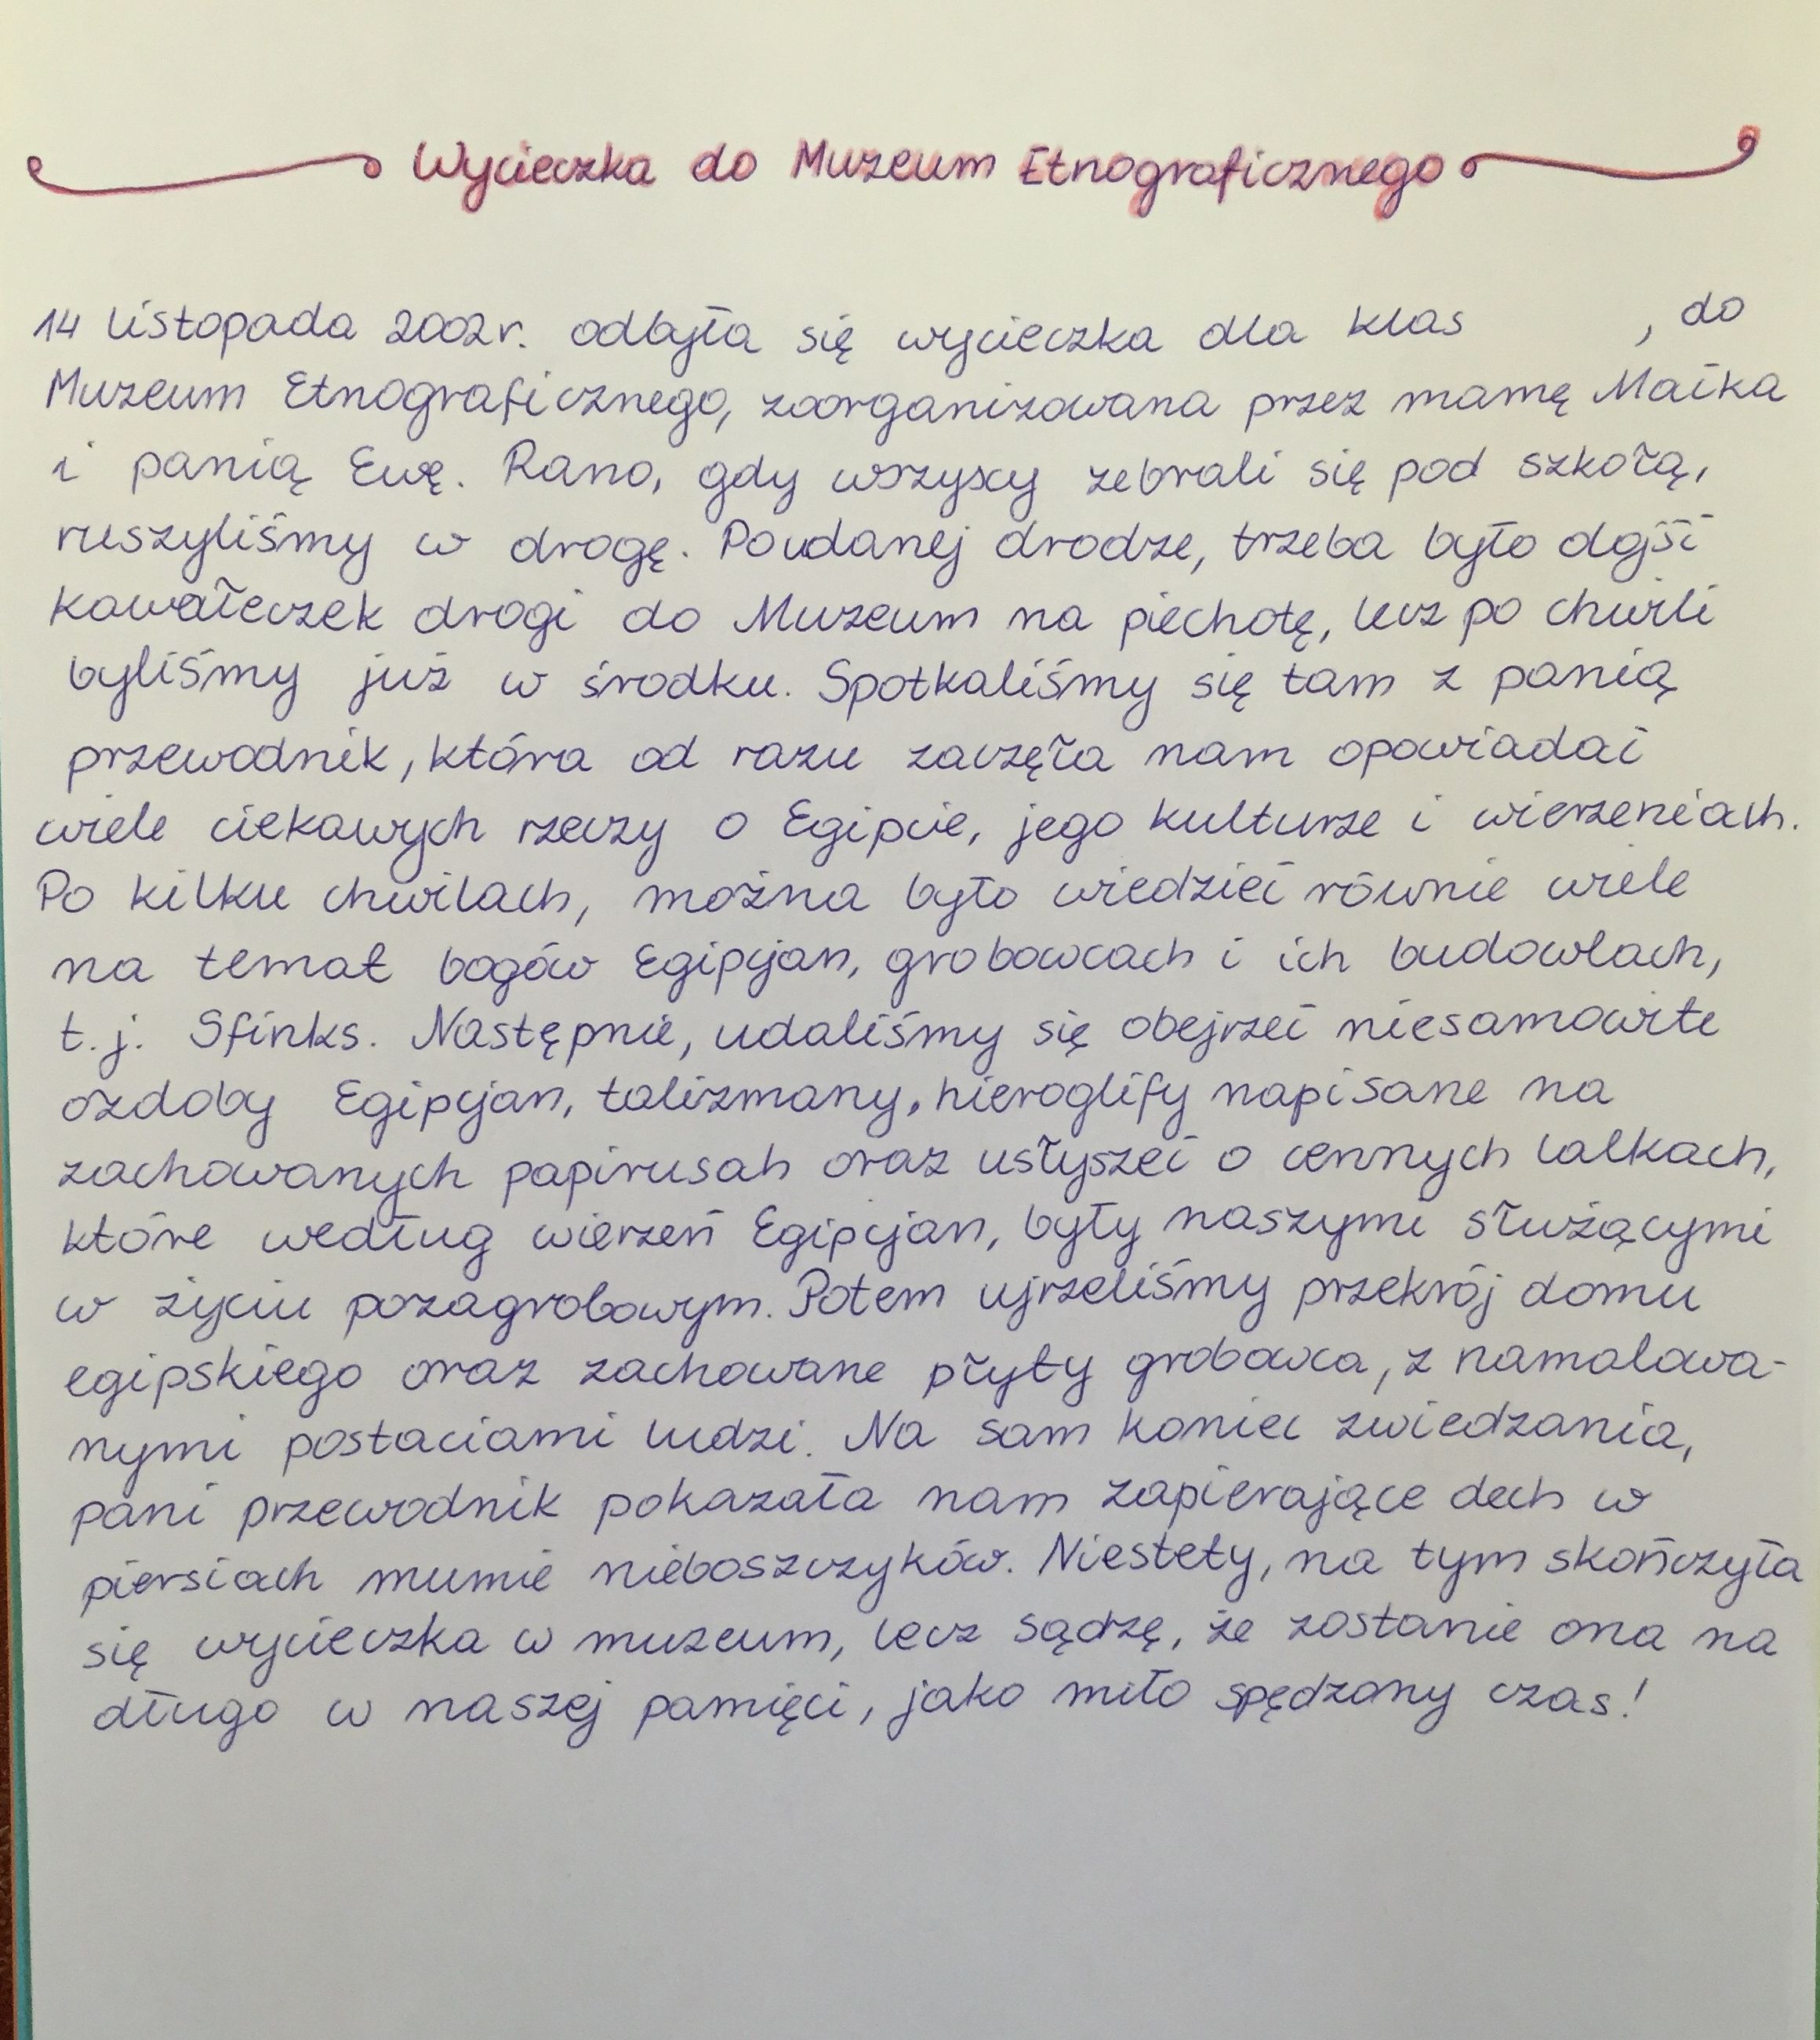 Wycieczka do Muzeum Etnograficznego
14 listopada 2002r. odbyła się wycieczka dla klas , do
Muzeum Etnograficznego, zoorganizowana przez mamę Maćka
i panią Ewę. Rano, gdy wszyscy zebrali się pod szkołą,
ruszyliśmy w drogę. Po udanej drodze, trzeba było dojść
kawałeczek drogi do Muzeum na piechotę, lecz po chwili
byliśmy już w środku. Spotkaliśmy się tam z panią
przewodnik, która od razu zaczęła nam opowiadać
wiele ciekawych rzeczy o Egipcie, jego kulturze i wierzeniach.
Po kilku chwilach, można było wiedzieć równie wiele
na temat bogów Egipcjan, grobowcach i ich budowlach,
t.j. Sfinks. Następnie, udaliśmy się obejrzeć niesamowite
ozdoby Egipcjan, talizmany, hieroglify napisane na
zachowanych papirusah oraz usłyszeć o cennych lalkach,
które według wierzeń Egipcjan, były naszymi służącymi
w życiu pozagrobowym. Potem ujrzeliśmy przekrój domu
egipskiego oraz zachowane płyty grobowca, z namalowa-
nymi postaciami ludzi. Na sam koniec zwiedzania,
pani przewodnik pokazała nam zapierające dech w
piersiach mumie nieboszczyków. Niestety, na tym skończyła
się wycieczka w muzeum, lecz sądzę, że zostanie ona na
długo w naszej pamięci, jako miło spędzony czas!